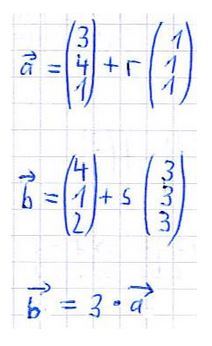 $\vec{a} = \begin{pmatrix} 3 \\ 4 \\ 1 \end{pmatrix} + r \begin{pmatrix} 1 \\ 1 \\ 1 \end{pmatrix}$
$\vec{b} = \begin{pmatrix} 4 \\ 1 \\ 2 \end{pmatrix} + s \begin{pmatrix} 3 \\ 3 \\ 3 \end{pmatrix}$
$\vec{b} = 3 \cdot \vec{a}$